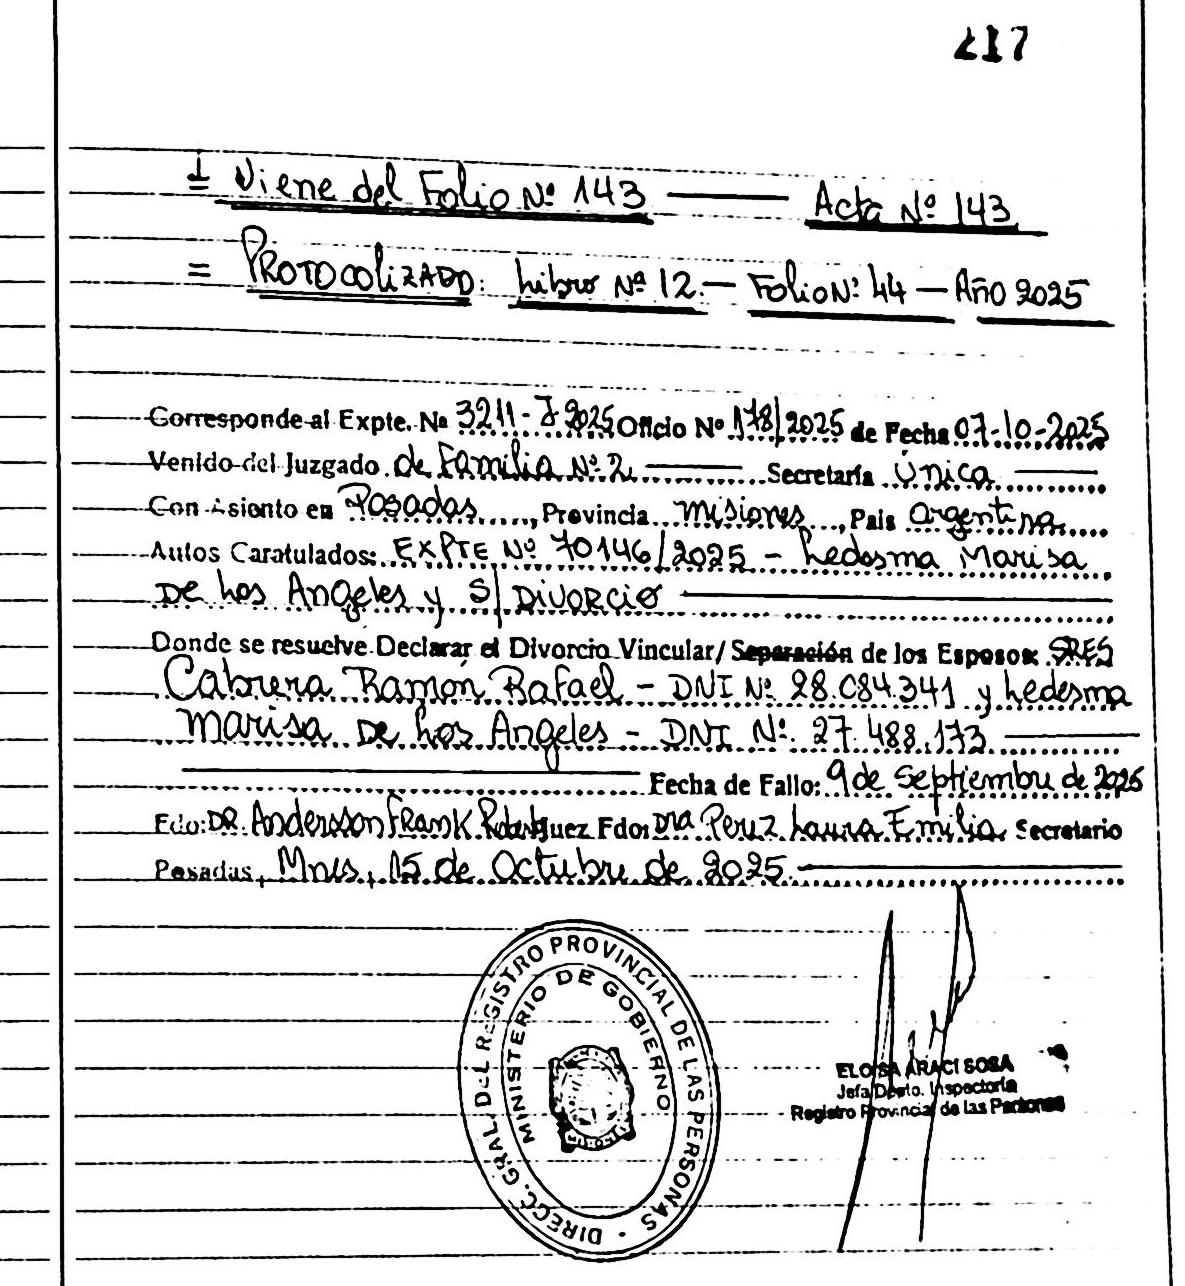 217
Viene del Folio Nº 143 — Acta Nº 143
= PROTOCOLIZADO: Libro Nº 12.— Folio Nº 44 — Año 2025
Corresponde al Expte. Nº 3211-J-2025 Oficio Nº 178/2025 de Fecha 07-10-2025
Venido del Juzgado de Familia Nº 2 Secretaría Única
Con Asiento en Posadas, Provincia Misiones, Pais Argentina
Autos Caratulados: EXPTE Nº 70146/2025 - Ledesma Marisa
De Los Angeles y S/ DIVORCIO
Donde se resuelve Declarar el Divorcio Vincular/ Separación de los Esposos: SRES
Cabrera Ramón Rafael - DNI Nº 28.084.341 y Ledesma
Marisa De Los Angeles - DNI Nº 27.488.173
Fecha de Fallo: 9 de Septiembre de 2025
Fdo: DR. Andersson Frank Fdo: Dra Perez Laura Emilia Secretario
Posadas, Mnes, 15 de Octubre de 2025.
DIRECC. GRAL. DEL REGISTRO PROVINCIAL DE LAS PERSONAS
MINISTERIO DE GOBIERNO
ELOISA ARACI SOSA
Jefa Dpto. Inspectoría
Registro Provincial de las Personas